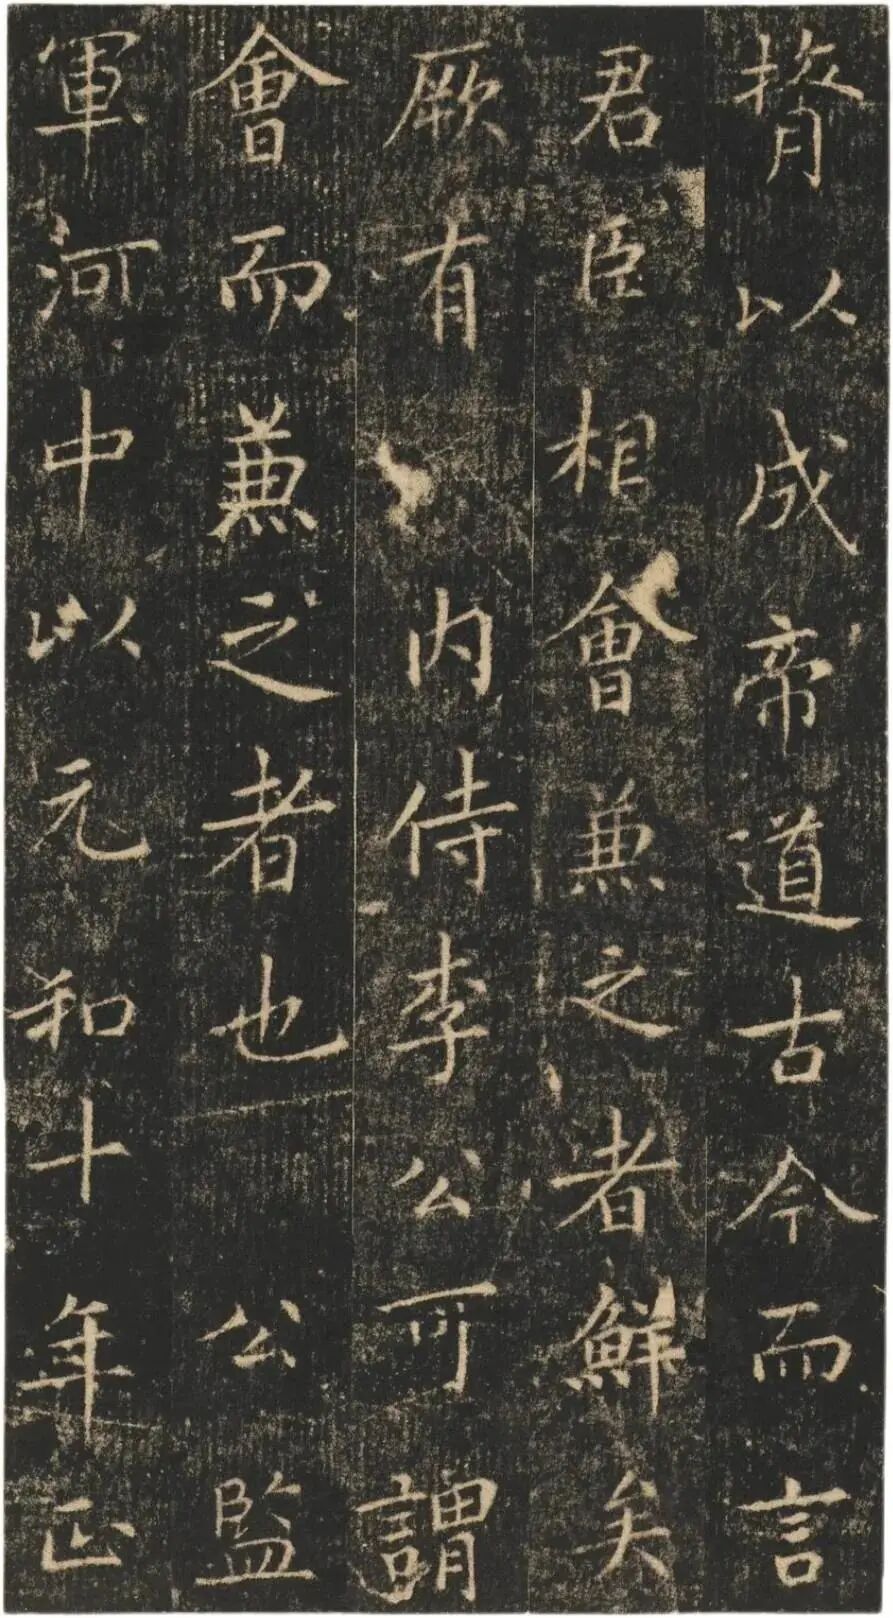 膂以成帝道古今而言
君臣相會兼之者鮮矣
厥有 内侍李公可謂
會而兼之者也 公監
軍河中以元和十年正